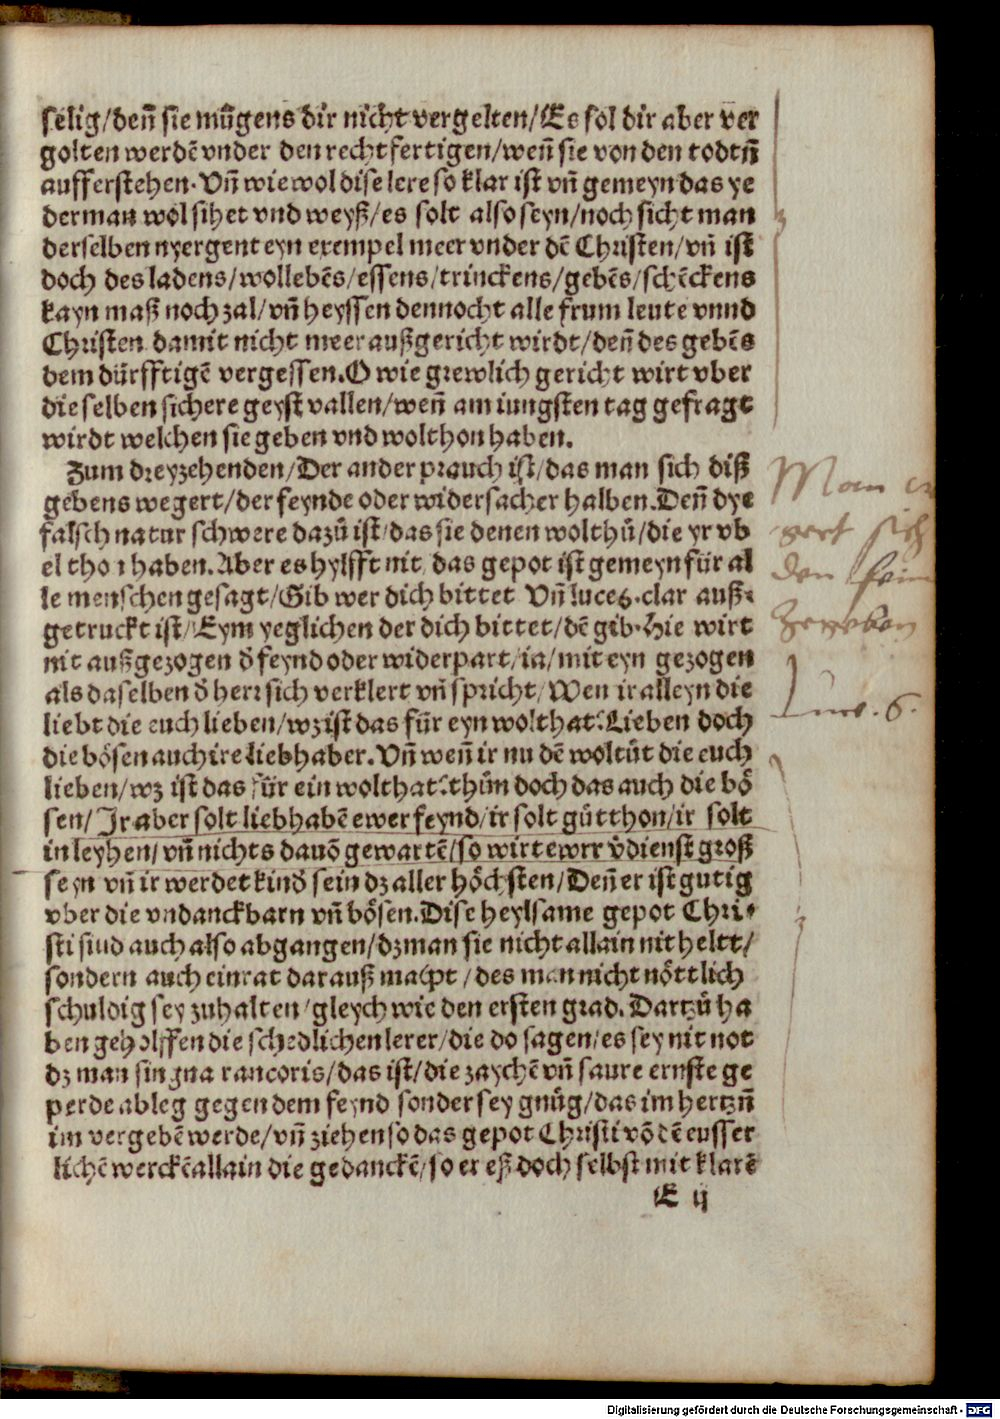 selig/deñ sie mügens dir nicht vergelten/Es sol dir aber ver
golten werdē vnder den rechtfertigen/weñ sie von den todtñ
aufferstehen. Vñ wie wol dise lere so klar ist vñ gemeyn das ye
derman wol sihet vnd weyß/es solt also seyn/noch sicht man
derselben nyergent eyn exempel meer vnder dē Christen/vñ ist
doch des ladens/wollebēs/essens/trinckens/gebēs/schēckens
kayn maß noch zal/vñ heyssen dennocht alle frum leute vnnd
Christen damit nicht meer außgericht wirdt/deñ des gebēs
dem dürfftigē vergessen. O wie grewlich gericht wirt vber
die selben sichere geyst vallen/weñ am iungsten tag gefragt
wirdt welchen sie geben vnd wolthon haben.
Zum dreyzehenden/Der ander prauch ist/das man sich diß
gebens wegert/der feynde oder widersacher halben. Deñ dye
falsch natur schwere dazů ist/das sie denen wolthů/die yr vb
el thon haben. Aber es hylfft nit, das gepot ist gemeyn für al
le menschen gesagt/Gib wer dich bittet Vñ luce 6. clar auß-
getruckt ist/Eym yeglichen der dich bittet/dē gib. Hie wirt
nit außgezogen ď feynd oder widerpart/ia/mit eyn gezogen
als daselben ď herr sich verklert vñ spricht/Wen ir alleyn die
liebt die euch lieben/wz ist das für eyn wolthat? Lieben doch
die bösen auch ire liebhaber. Vñ weñ ir nu dē woltůt die euch
lieben/wz ist das für ein wolthat? thůn doch das auch die bö
sen/Ir aber solt liebhabē ewer feynd/ir solt gůtthon/ir solt
in leyhen/vñ nichts dauō gewartē/so wirt ewrr v̄dienst groß
seyn vñ ir werdet kinď sein dz aller höchsten/Deñ er ist gutig
vber die vndanckbarn vñ bösen. Dise heylsame gepot Chri-
sti sind auch also abgangen/dz man sie nicht allain nit heltt/
sondern auch ein rat darauß macht/des man nicht nöttlich
schuldig sey zuhalten/gleych wie den ersten grad. Dartzů ha
ben geholffen die schedlichen lerer/die do sagen/es sey nit not
dz man singna rancoris/das ist/die zaychē vñ saure ernste ge
perde ableg gegen dem feynd sonder sey gnůg/das im hertzñ
im vergebē werde/vñ ziehen so das gepot Christi vō dē eusser
lichē werckē allain die gedanckē/so er eß doch selbst mit klarē
E ij
Man
sich
den fein
Zegeben
Luc. 6.
Digitalisierung gefördert durch die Deutsche Forschungsgemeinschaft - DFG